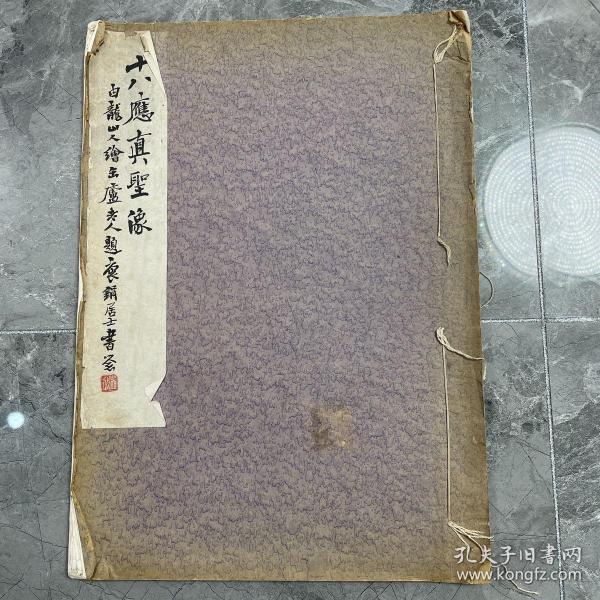 十八應真聖像
白龍山人繪缶廬老人題褱鋗居士書簽
孔夫子旧書网
www.kongfz.com